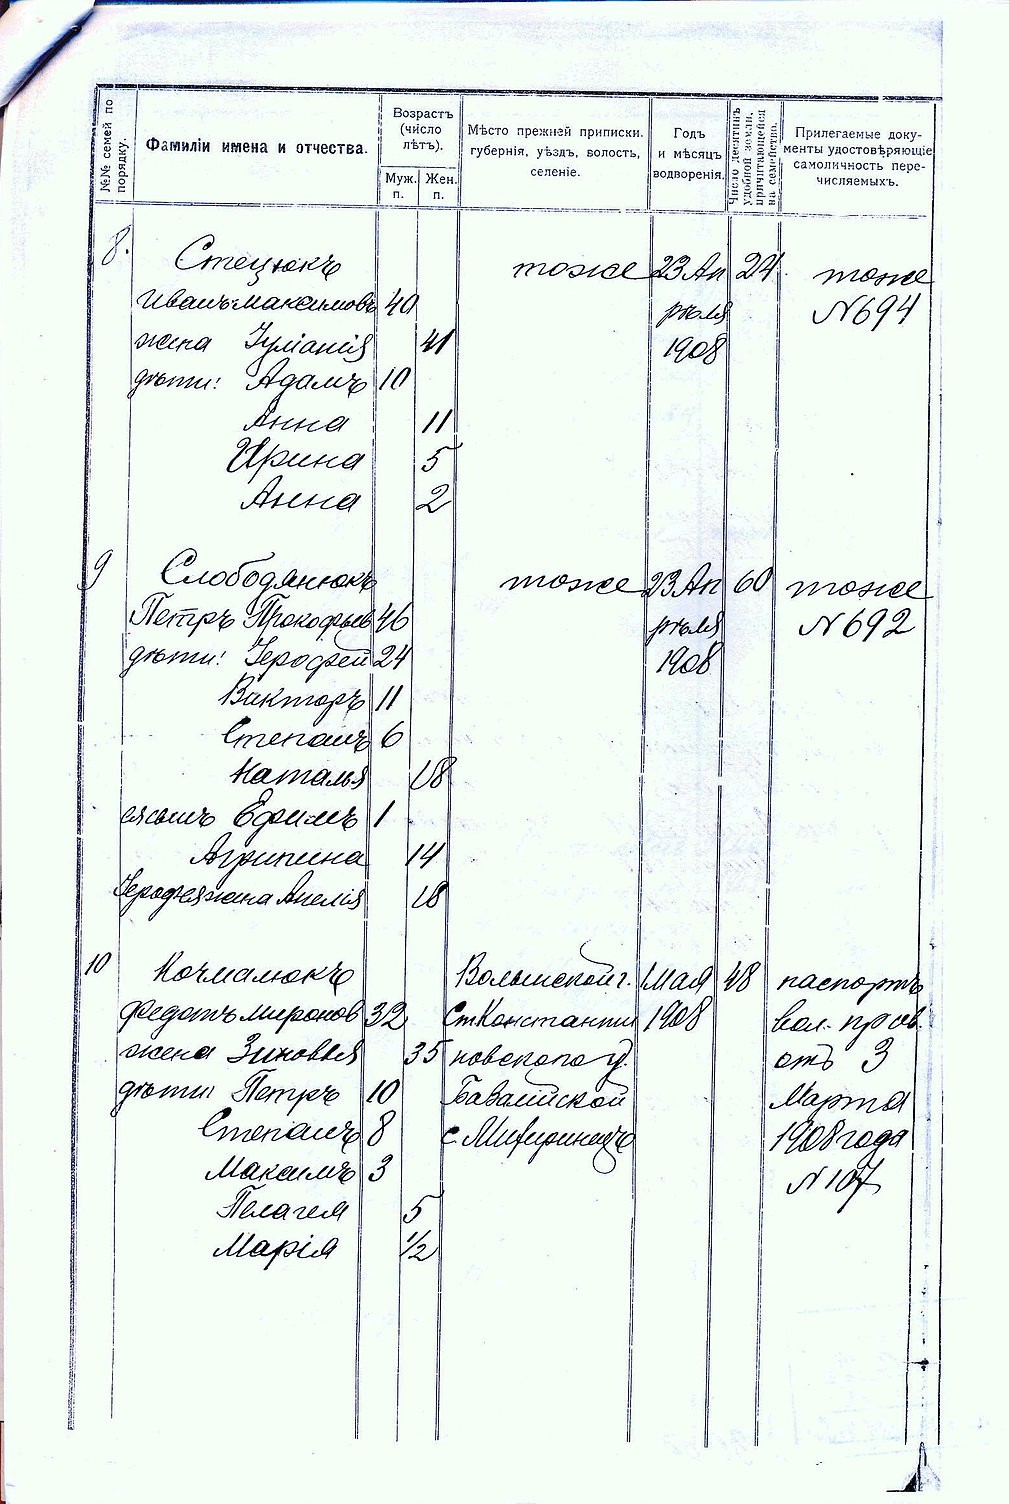 №№ семей по порядку.
Фамиліи имена и отчества.
Возрастъ (число лѣтъ).
Муж. п.
Жен. п.
Мѣсто прежней приписки. губернія, уѣздъ, волость, селеніе.
Годъ и мѣсяцъ водворенія.
Число десятинъ удобной земли, причитающейся на семейство.
Прилегаемые документы удостовѣряющіе самоличность перечисляемыхъ.
8. Стецюкъ тоже 23 Ап 24. тоже
Иванъ Максимовъ 40 рѣля N 694
жена Іуліанія 41 1908
дѣти: Адамъ 10
Анна 11
Ирина 5
Анна 2
9 Слободянюкъ тоже 23 Ап 60 тоже
Петръ Прокофьев 46 рѣля N 692
дѣти: Іерофей 24 1908
Викторъ 11
Степанъ 6
Наталья 18
ея сынъ Ефимъ 1
Агрипина 14
Іерофея жена Анелія 18
10 Кочмалюкъ Волынской г. 1 Мая 48 паспортъ
Федотъ Миронов 32 Ст. Константи 1908 вол. прав.
жена Зиновья 35 новского у. отъ 3
дѣти Петръ 10 Базалійской Марта
Степанъ 8 с. 1908 года
Максимъ 3 N 107
Пелагея 5
Марія 1/2